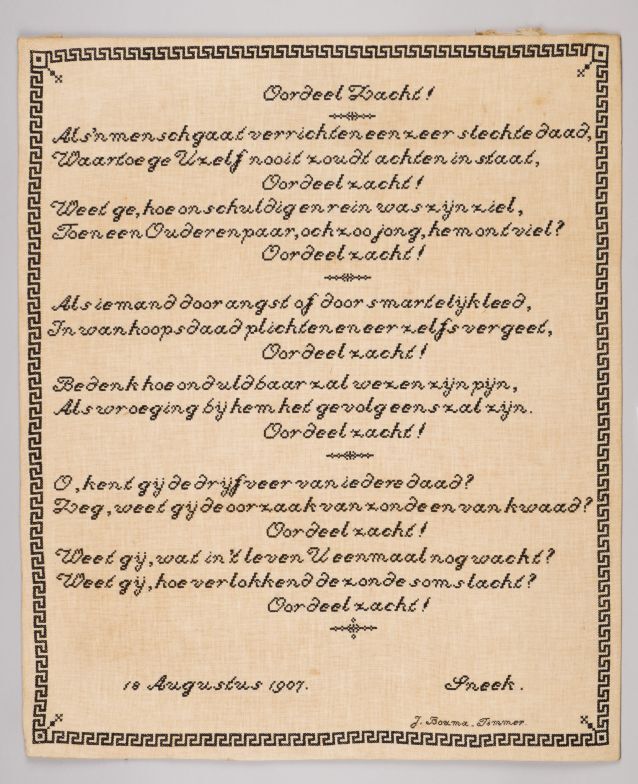 Oordeel Zacht!
Als 'n mensch gaat verrichten een zeer slechte daad,
Waartoe ge Uzelf nooit zoudt achten in staat,
Oordeel zacht!
Weet ge, hoe onschuldig en rein was zijn ziel,
Toen een Ouderenpaar, och zoo jong, hem ontviel?
Oordeel zacht!
Als iemand door angst of door smartelijk leed,
In wanhoopsdaad plichten en eer zelfs vergeet,
Oordeel zacht!
Bedenk hoe onduldbaar zal wezen zijn pijn,
Als wroeging bij hem het gevolg eens zal zijn.
Oordeel zacht!
O, kent gij de drijfveer van iedere daad?
Zeg, weet gij de oorzaak van zonde en van kwaad?
Oordeel zacht!
Weet gij, wat in 't leven U eenmaal nog wacht?
Weet gij, hoe verlokkend de zonde soms lacht?
Oordeel zacht!
18 Augustus 1907. Sneek.
J. Bouma, Timmer